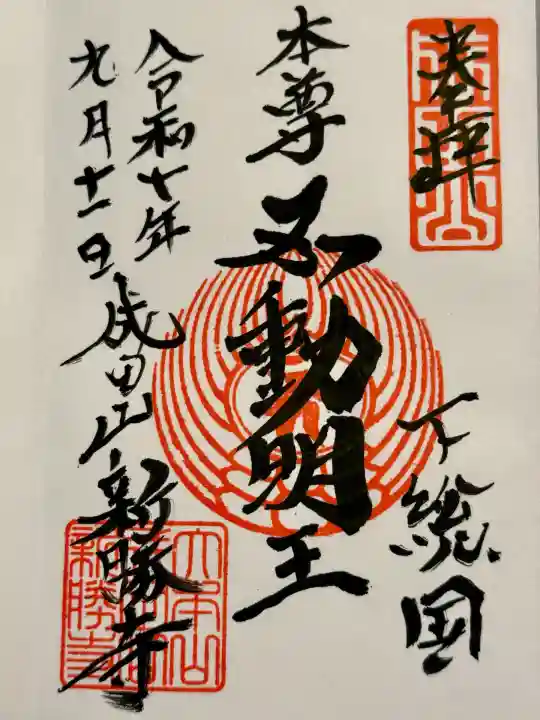 奉拝
下総国
本尊
不動明王
令和七年
九月十一日
成田山新勝寺
新勝寺